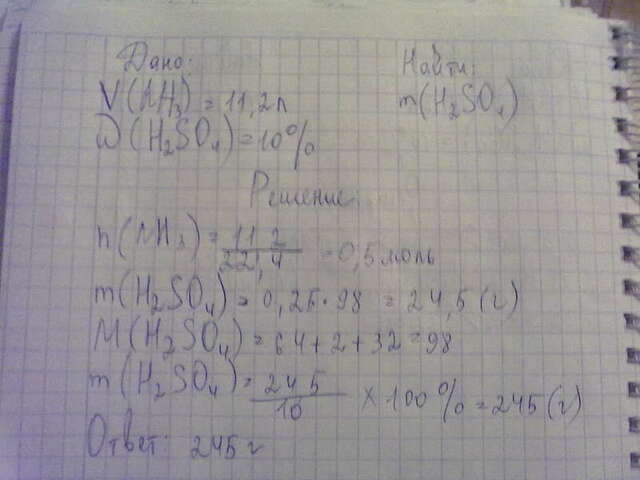 Дано: Найти:
V(NH₃) = 11,2л m(H₂SO₄)
W(H₂SO₄) = 10%
Решение:
n(NH₃) = 11,2/22,4 = 0,5 моль
m(H₂SO₄) = 0,25 · 98 = 24,5 (г)
M(H₂SO₄) = 64 + 2 + 32 = 98
m(H₂SO₄) = 24 5/10 × 100% = 245 (г)
Ответ: 245 г